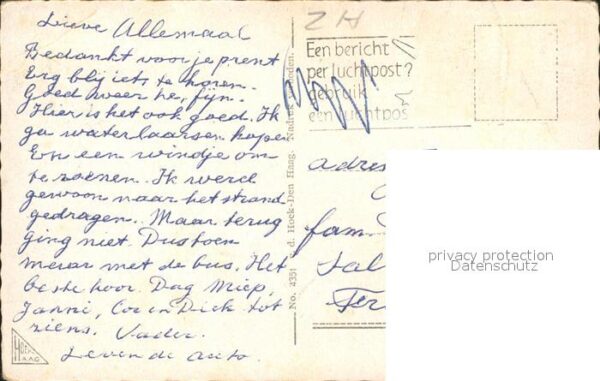 Lieve Allemaal
Bedankt voor je prent
Erg blij iets te horen.
Goed weer he, fijn.
Hier is het ook goed. Ik
ga waterlaarsen kopen
En een windje om
te zoenen. Ik werd
gewoon naar het strand
gedragen. Maar terug
ging niet. Dus toen
maar met de bus. Het
beste hoor. Dag Miep,
Janni, Cor en Dick tot
ziens. Vader.
Leven de auto.
HOEK
HAAG
No. 4351 d. Hoek-Den Haag. Nadruk
ZH
Een bericht
per luchtpost?
gebruik
een luchtpos
adres
fam
Ter
privacy protection
Datenschutz